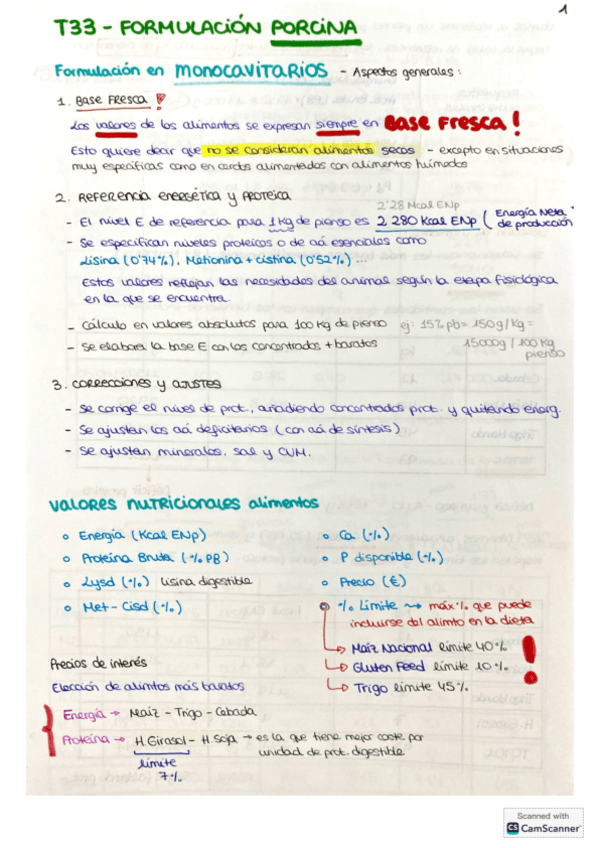 1
T33 - FORMULACIÓN PORCINA
Formulación en MONOCAVITARIOS - Aspectos generales:
1. BASE FRESCA !
Los valores de los alimentos se expresan siempre en BASE FRESCA!
Esto quiere decir que no se consideran alimentos secos - excepto en situaciones
muy específicas como en cerdos alimentados con alimentos húmedos
2. REFERENCIA ENERGÉTICA Y PROTEICA
2'28 Mcal ENp
- El nivel E de referencia para 1 kg de pienso es 2 280 Kcal ENp ( Energía Neta
de producción
- Se especifican niveles proteicos o de aá esenciales como
Lisina (0'74%), Metionina + cistina (0'52%) ...
Estos valores reflejan las necesidades del animal según la etapa fisiológica
en la que se encuentra.
- Cálculo en valores absolutos para 100 kg de pienso ej: 15% pb = 150g/kg =
- Se elabora la base E con los concentrados + baratos 15000g / 100 kg
pienso
3. CORRECCIONES Y AJUSTES
- Se corrige el nivel de prot., añadiendo concentrados prot. y quitando energ.
- Se ajustan los aá deficitarios (con aá de síntesis)
- Se ajustan minerales, sal y CVM.
VALORES NUTRICIONALES alimentos
o Energía (Kcal ENp) o Ca (%)
o Proteína Bruta (% PB) o P disponible (%)
o Lysd (%) lisina digestible o Precio (€)
o Met - Cisd (%) o % Límite → máx % que puede
incluirse del alimto en la dieta
Precios de interés → Maíz Nacional límite 40% !
→ Gluten Feed límite 10%
Elección de alimtos más baratos → Trigo límite 45%
Energía → Maíz - Trigo - Cebada
Proteína → H. Girasol - H. Soja → es la que tiene mejor coste por
unidad de prot. digestible
límite
7%
Scanned with
CS CamScanner